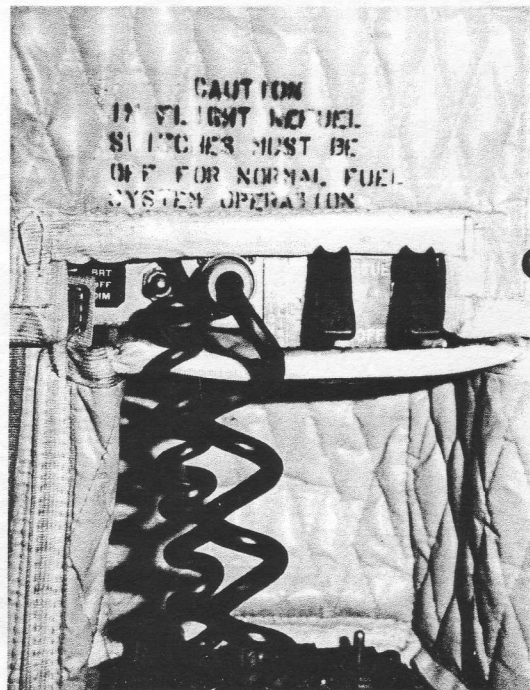 CAUTION
IN FLIGHT REFUEL
SWITCHES MUST BE
OFF FOR NORMAL FUEL
SYSTEM OPERATION
BRT
OFF
DIM